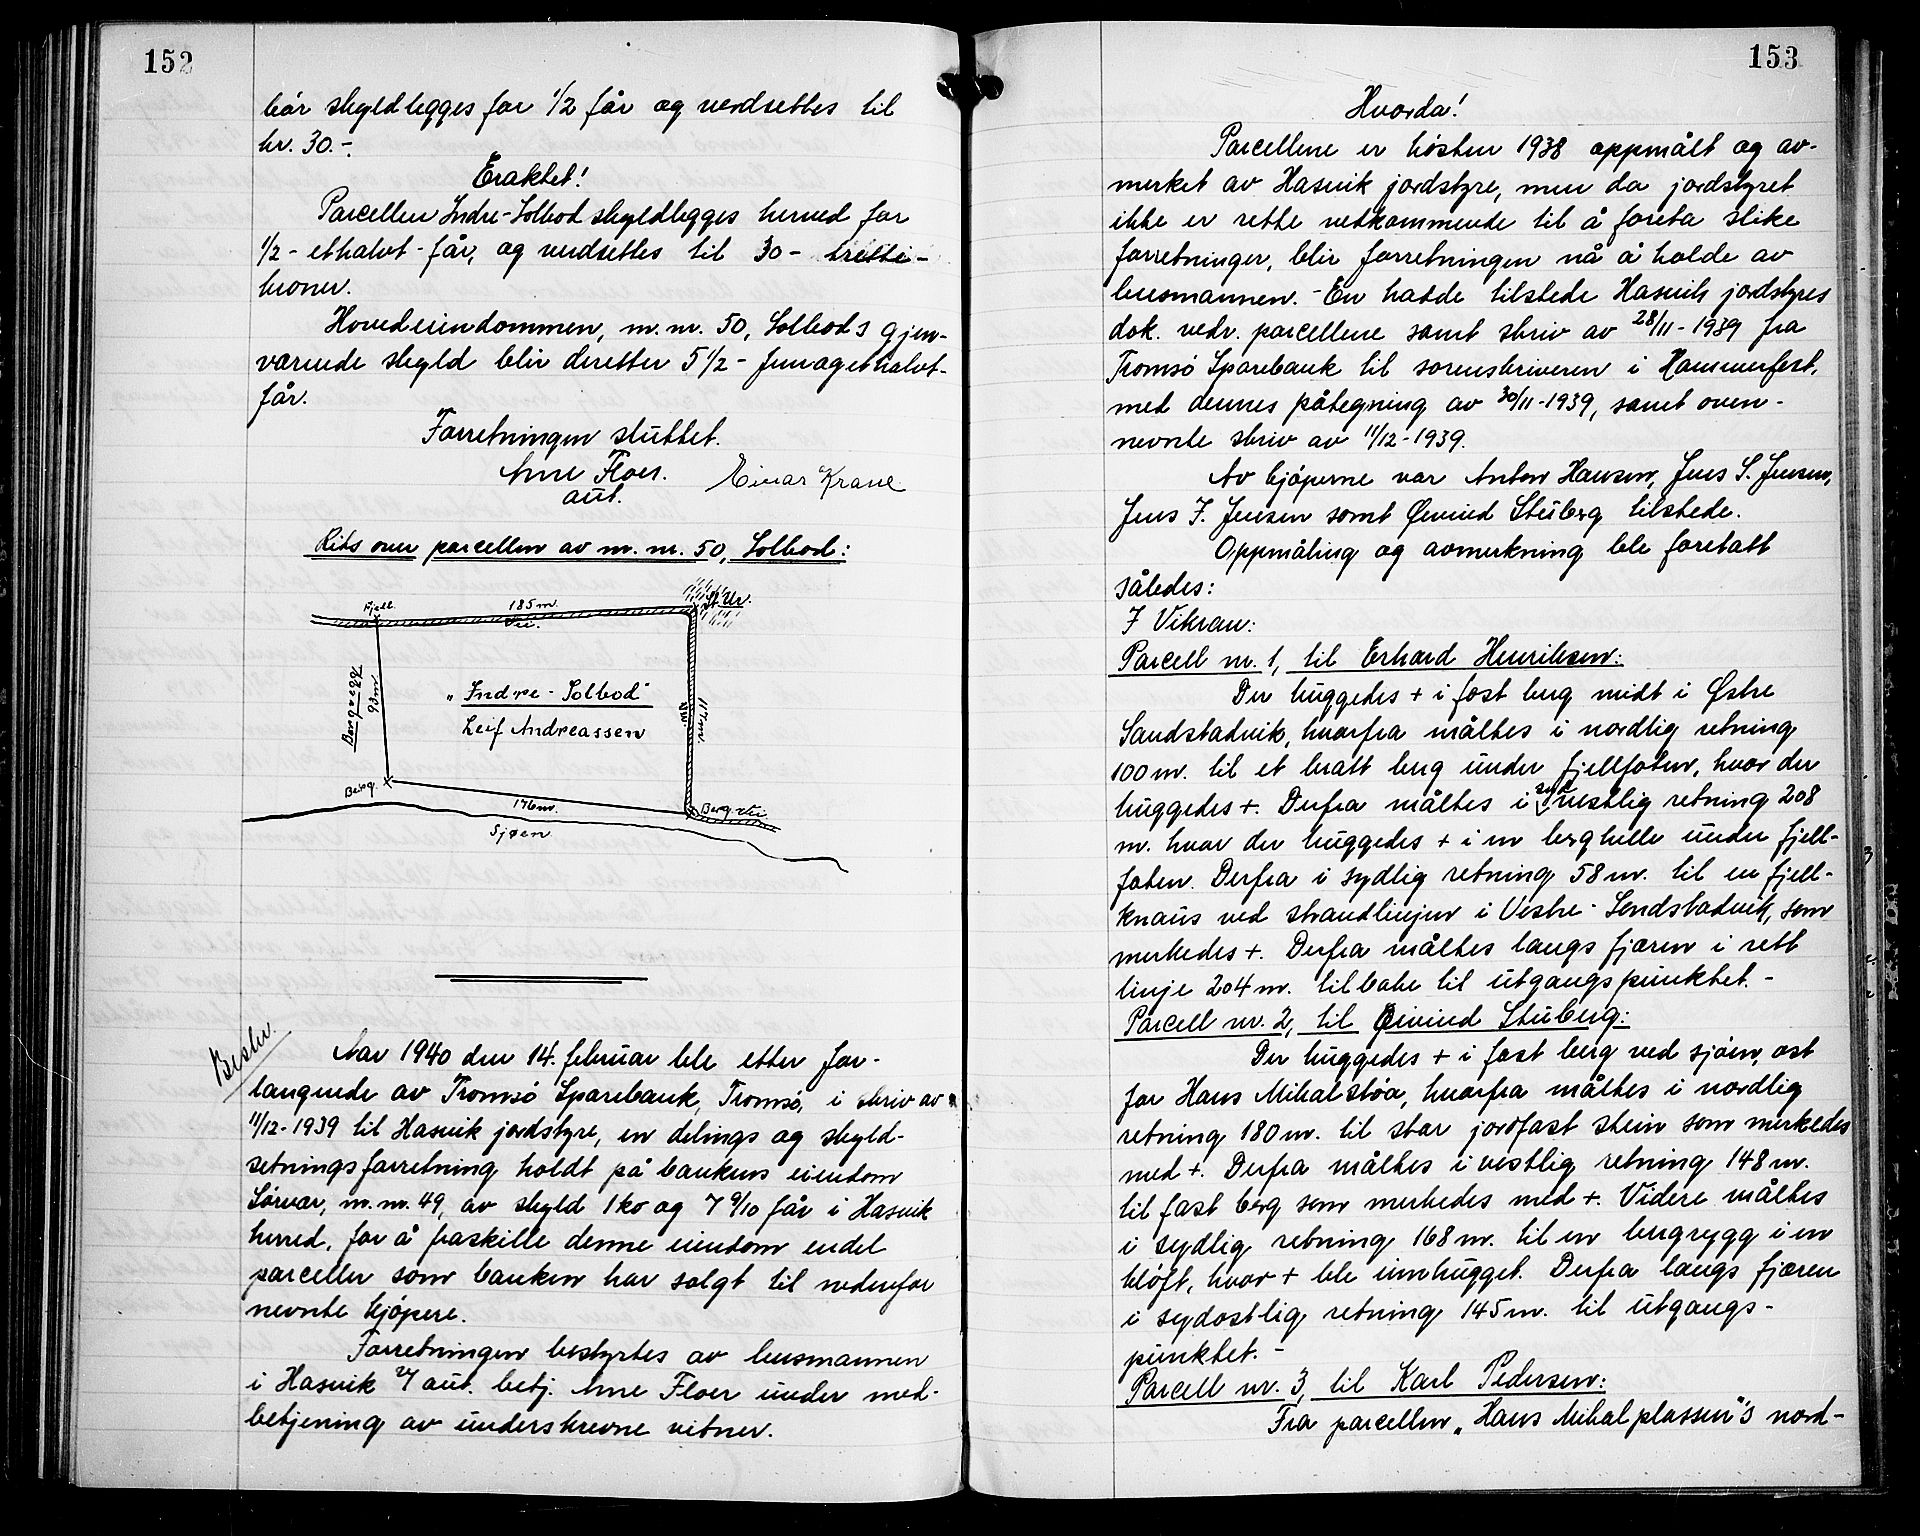 152
bör skyldlegges for 1/2 får og verdsettes til
kr. 30.-
Eraktet!
Parcellen Indre-Solbod skyldlegges herved for
1/2 - ethalvt - får, og verdsettes til 30 - tretti -
kroner.
Hovedeiendommen, m. nr. 50, Solbods gjen-
værende skyld blir deretter 5 1/2 - femogethalvt-
får.
Forretningen sluttet.
Arne Floer. Einar Krane
aut.
Rits over parcellen av m. nr. 50, Solbod:
Fjell. 185 m. St. Ur.
Vei.
Bergvegg 93 m
"Indre-Solbod"
Leif Andreassen
Vei
117 m.
Berg. 176 m. Berg. Vei.
Sjøen
Beskr.
Aar 1940 den 14. februar ble etter for-
langende av Tromsö Sparebank, Tromsö, i skriv av
11/12-1939 til Hasvik jordstyre, en delings og skyld-
setningsforretning holdt på bankens eiendom
Sörvær, m. nr. 49, av skyld 1 ko og 7 9/10 får i Hasvik
herred, for å fraskille denne eiendom endel
parceller som banken har solgt til nedenfor
nevnte kjöpere.
Forretningen bestyrtes av lensmannen
i Hasvik v/ aut. betj. Arne Floer under med-
betjening av underskrevne vitner.
153
Hvorda!
Parcellene er hösten 1938 oppmålt og av-
merket av Hasvik jordstyre, men da jordstyret
ikke er rette vedkommende til å foreta slike
forretninger, blir forretningen nå å holde av
lensmannen. - En hadde tilstede Hasvik jordstyres
dok. vedr. parcellene samt skriv av 28/11-1939 fra
Tromsö Sparebank til sorenskriveren i Hammerfest,
med dennes påtegning av 30/11-1939, samt oven-
nevnte skriv av 11/12-1939.
Av kjöperne var Anton Hansen, Jens S. Jensen,
Jens F. Jensen samt Øivind Stüberg tilstede.
Oppmåling og avmerkning ble foretatt
således:
I Vikran:
Parcell nr. 1, til Erhard Henriksen:
Der huggedes + i fast berg midt i Østre
Sandstadvik, hvorfra måltes i nordlig retning
100 m. til et bratt berg under fjellfoten, hvor der
huggedes +. Derfra måltes i syd vestlig retning 208
m. hvor der huggedes + i en berghelle under fjell-
foten. Derfra i sydlig retning 58 m. til en fjell-
knaus ved strandlinjen i Vestre Sandstadvik, som
merkedes +. Derfra måltes langs fjæren i rett
linje 204 m. tilbake til utgangspunktet. -
Parcell nr. 2, til Øivind Stuberg:
Der huggedes + i fast berg ved sjöen, ost
for Hans Mikalstöa, hvorfra måltes i nordlig
retning 180 m. til stor jordfast stein som merkedes
med +. Derfra måltes i vestlig retning 148 m.
til fast berg som merkedes med +. Videre måltes
i sydlig retning 168 m. til en bergrygg i en
klöft, hvor + ble innhugget. Derfra langs fjæren
i sydostlig retning 145 m. til utgangs-
punktet. -
Parcell nr. 3, til Karl Pedersen:
Fra parcellen "Hans Mikalplassen"s nord-